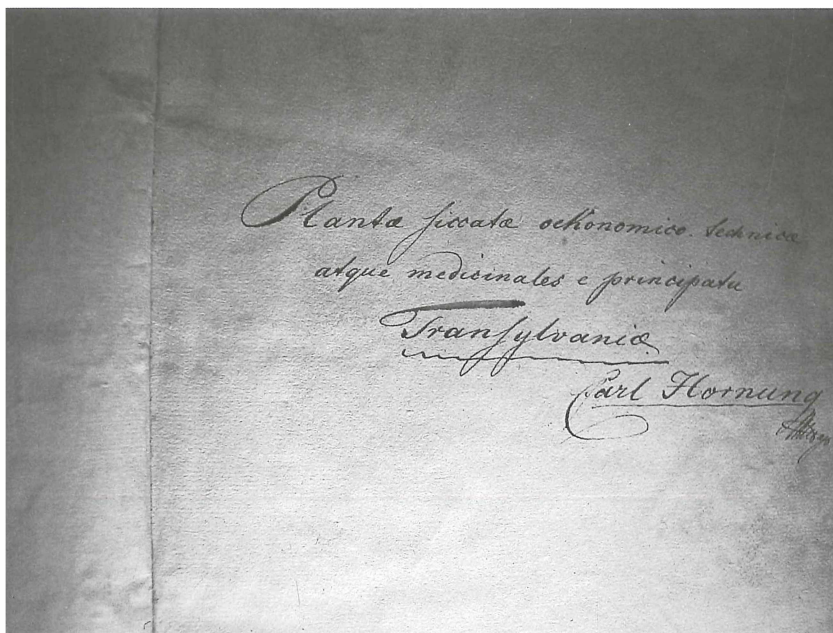 Plantæ siccatæ oekonomico-technicæ
atque medicinales e principatu
Transylvaniæ
Carl Hornung